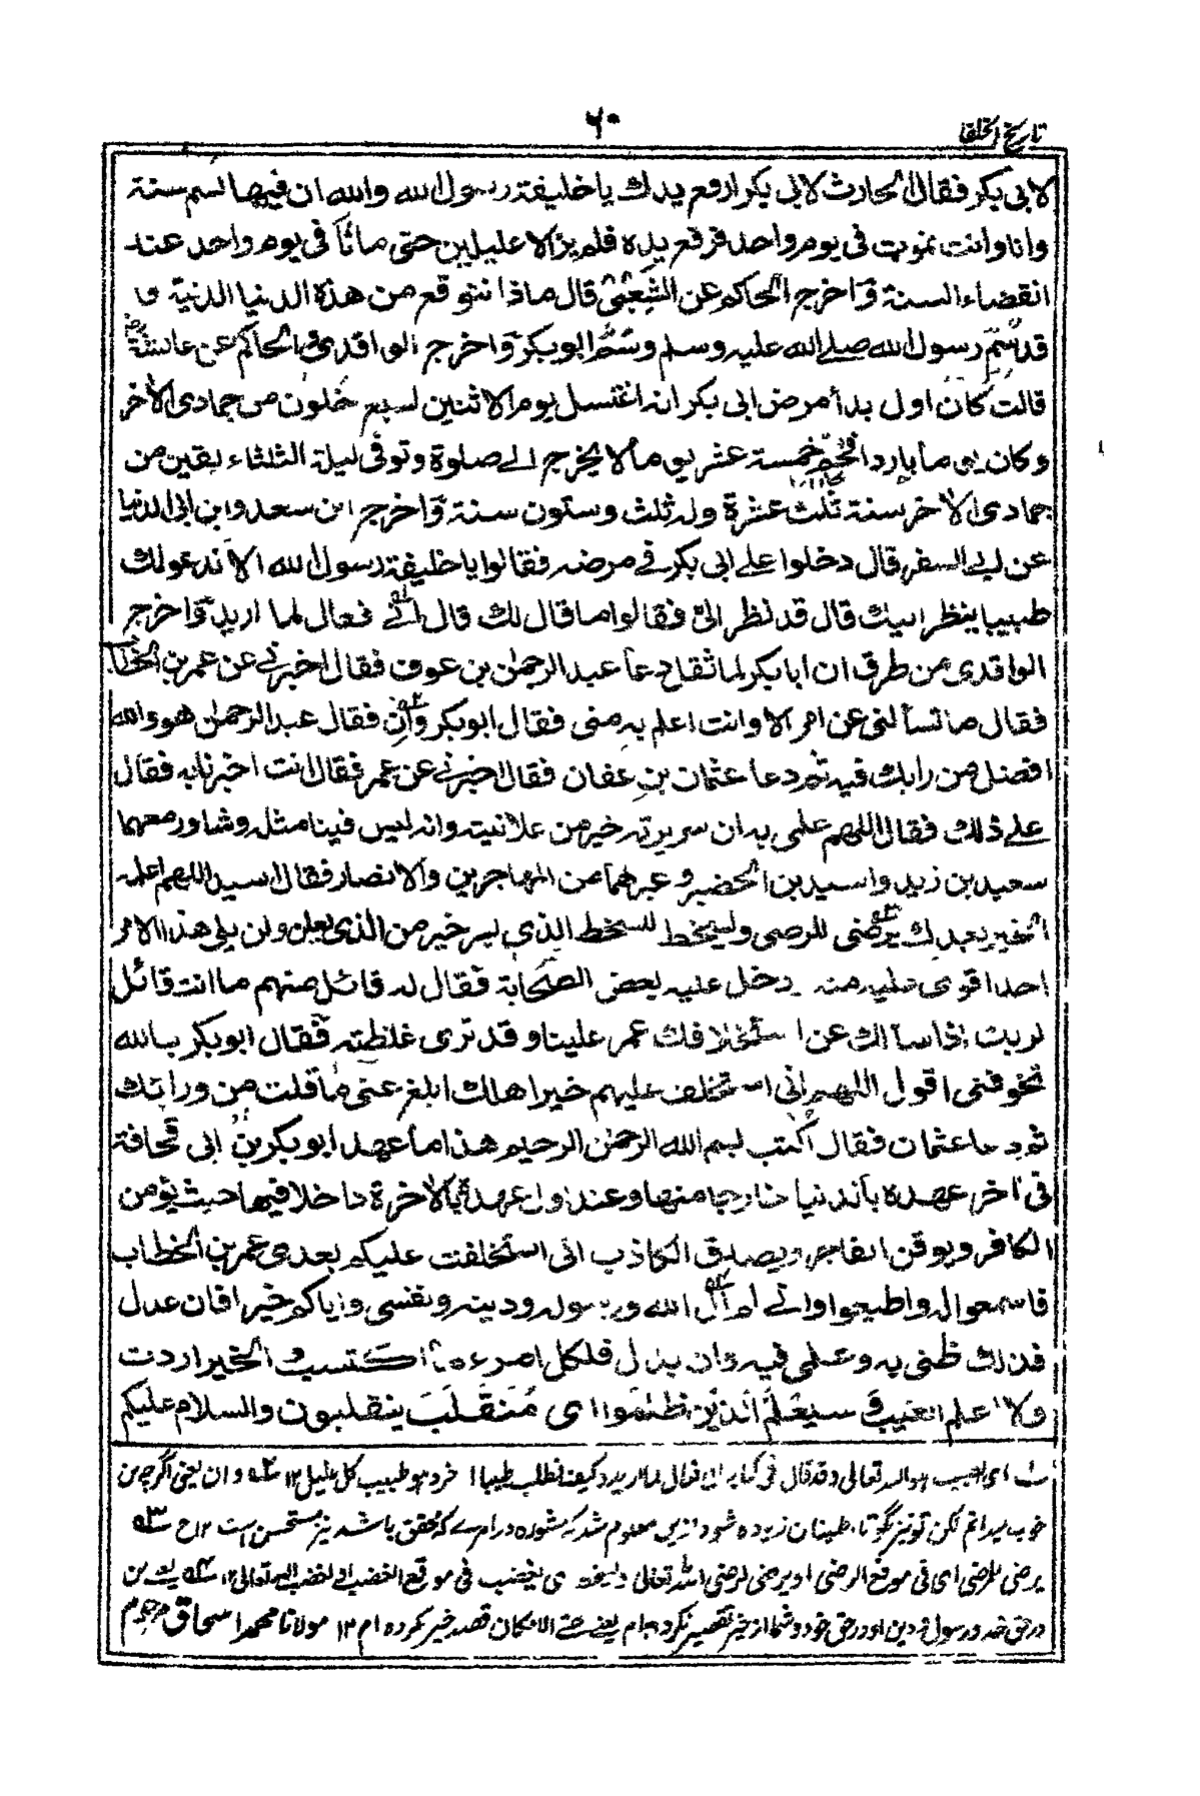 تاريخ الخلفا
٦٠
لابي بكر فقال الحارث لابي بكر ارفع يدك يا خليفة رسول الله والله ان فيها لسم سنة
وانا وانت نموت في يوم واحد فرفع يده فلم يزالا عليلين حتى ماتا في يوم واحد عند
انقضاء السنة وَاخرج الحاكم عن الشعبي قال ماذا نتوقع من هذه الدنيا الدنية و
قد سُمَّ رسول الله صلے الله عليه وسلم وسُمَّ ابو بكر وَاخرج الواقدي والحاكم عن عائشة رض
قالت كان اول بدأ مرض ابي بكر انه اغتسل يوم الاثنين لسبع خلون من جمادى الاخر
وكان يوما باردا فحُمّ خمسة عشر يوما لا يخرج الے صلوة وتوفى ليلة الثلثاء لثمان بقين من
جمادى الاخر سنة ثلث عشرة وله ثلث وستون سنة وَاخرج ابن سعد وابن ابي الدنيا
عن ابي السفر قال دخلوا علے ابي بكر فے مرضه فقالوا يا خليفة رسول الله الا ندعو لك
طبيبا ينظر اليك قال قد نظر الیّ فقالوا ما قال لك قال انے فعال لما اريد وَاخرج
الواقدي من طرق ان ابا بكر لما ثقل دعا عبد الرحمن بن عوف فقال اخبرنے عن عمر بن الخطاب
فقال ما تسألني عن امر الا وانت اعلم به منى فقال ابو بكر وَاِن فقال عبد الرحمن هو والله
افضل من رايك فيه ثم دعا عثمان بن عفان فقال اخبرنے عن عمر فقال انت اخبرنا به فقال
علے ذلك فقال اللهم علمي به ان سريرته خير من علانيته وانه ليس فينا مثله وشاور معهما
سعيد بن زيد واسيد بن الحضير و غيرهما من المهاجرين والانصار فقال اسيد اللهم اعلمه
الخير بعدك يرضى للرضى ويسخط للسخط الذي يسر خير من الذي يعلن ولن يلي هذا الامر
احدا قوى عليه منه ودخل عليه بعض الصحابة فقال له قائل منهم ما انت قائل
لربك اذا سألك عن استخلافك عمر علينا وقد ترى غلظته فقال ابو بكر بالله
تخوفني اقول اللهم اني استخلفت عليهم خير اهلك ابلغ عنى ما قلت من ورائك
ثم دعا عثمان فقال اكتب بسم الله الرحمن الرحيم هذا ما عهد ابو بكر بن ابي قحافة
في اخر عهده بالدنيا خارجا منها وعند اول عهده بالاخرة داخلا فيها حيث يؤمن
الكافر ويوقن الفاجر ويصدق الكاذب اني استخلفت عليكم بعدى عمر بن الخطاب
فاسمعوا له واطيعوا وانے لم آل الله ورسوله ودينه ونفسى واياكم خيرا فان عدل
فذلك ظني به وعلمي فيه وان بدل فلكل امرء ما اكتسب والخير اردت
ولا اعلم الغيب وَ سيعلم الذين ظلموا اى مُنقَلَبٍ ينقلبون والسلام عليكم
اى الطبيب هو الله تعالى وقد قال فى كتابه انى فعال لما اريد فكيف نطلب طبيبا آخر وهو طبيب كل عليل ١٢ وان يعنى اگرچه من
خوب ميدانم لكن تو نيز بگو تا اطمينان زياده شود ازين معلوم شد كه مشوره در امرے كه محقق باشد نيز مستحسن است ١٢ ح
يرضى للرضى اى فى موقع الرضى او يرضى لرضى الله تعالى ويسخط اى يغضب فى موقع الغضب او لغضب الله تعالى ١٢ يعنى من
در حق خدا ورسول ودين او ودر حق خود وشما از خير تقصير نكرده ام يعنے حتى الامكان قصد خير كرده ام ١٢ مولانا محمد اسحاق مرحوم